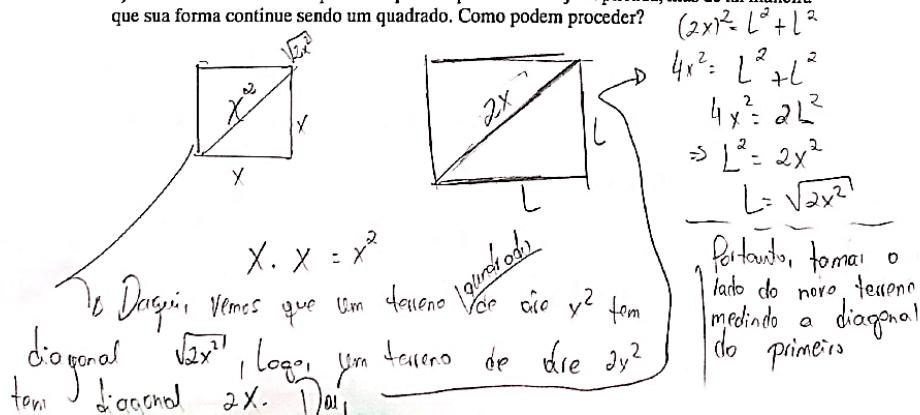 que sua forma continue sendo um quadrado. Como podem proceder?
√2x²
x²
x
x
2x
L
L
(2x)² = L² + L²
4x² = L² + L²
4x² = 2L²
⇒ L² = 2x²
L = √2x²
X . X = x²
Daqui, vemos que um terreno quadrado de x² tem
diagonal √2x², Logo, um terreno de 2x²
tem diagonal 2x. Daí,
Portanto, tomar o
lado do novo terreno
medindo a diagonal
do primeiro